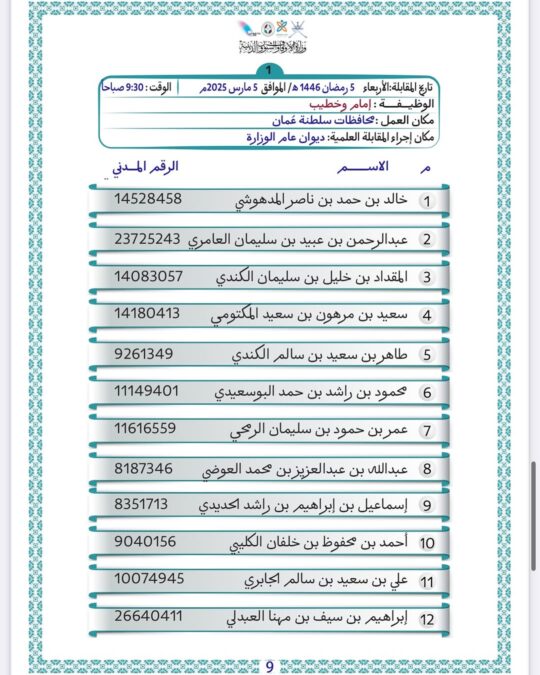 وزارة الأوقاف والشؤون الدينية
1
تاريخ المقابلة:الأربعاء 5 رمضان 1446 ه/ الموافق 5 مارس 2025م الوقت: 9:30 صباحا
الوظيفة : إمام وخطيب
مكان العمل :محافظات سلطنة عُمان
مكان إجراء المقابلة العلمية: ديوان عام الوزارة
م الاسم الرقم المدني
1 خالد بن حمد بن ناصر المدهوشي 14528458
2 عبدالرحمن بن عبيد بن سليمان العامري 23725243
3 المقداد بن خليل بن سليمان الكندي 14083057
4 سعيد بن مرهون بن سعيد المكتومي 14180413
5 طاهر بن سعيد بن سالم الكندي 9261349
6 محمود بن راشد بن حمد البوسعيدي 11149401
7 عمر بن حمود بن سليمان الرمحي 11616559
8 عبدالله بن عبدالعزيز بن محمد العوضي 8187346
9 إسماعيل بن إبراهيم بن راشد الحديدي 8351713
10 أحمد بن محفوظ بن خلفان الكليبي 9040156
11 علي بن سعيد بن سالم الجابري 10074945
12 إبراهيم بن سيف بن مهنا العبدلي 26640411
9